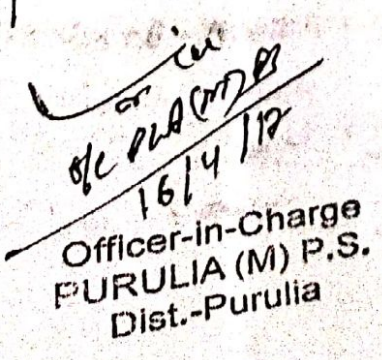 O/C PLA (M) PS
16/4/17
Officer-in-Charge
PURULIA (M) P.S.
Dist.-Purulia